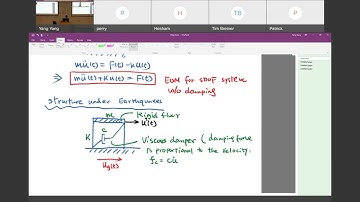 Yang Yang
perry
P
H
Hesham
TB
Tim Biemer
P
Patrick
mü(t) = F(t) - ku(t)
⇒ mü(t) + Ku(t) = F(t)
EOM for SDOF system
w/o damping
Structure under Earthquakes
m
Rigid floor
u(t)
K
c
Viscous damper (damping force
is proportional to the velocity.
fc = cu̇
ug(t)